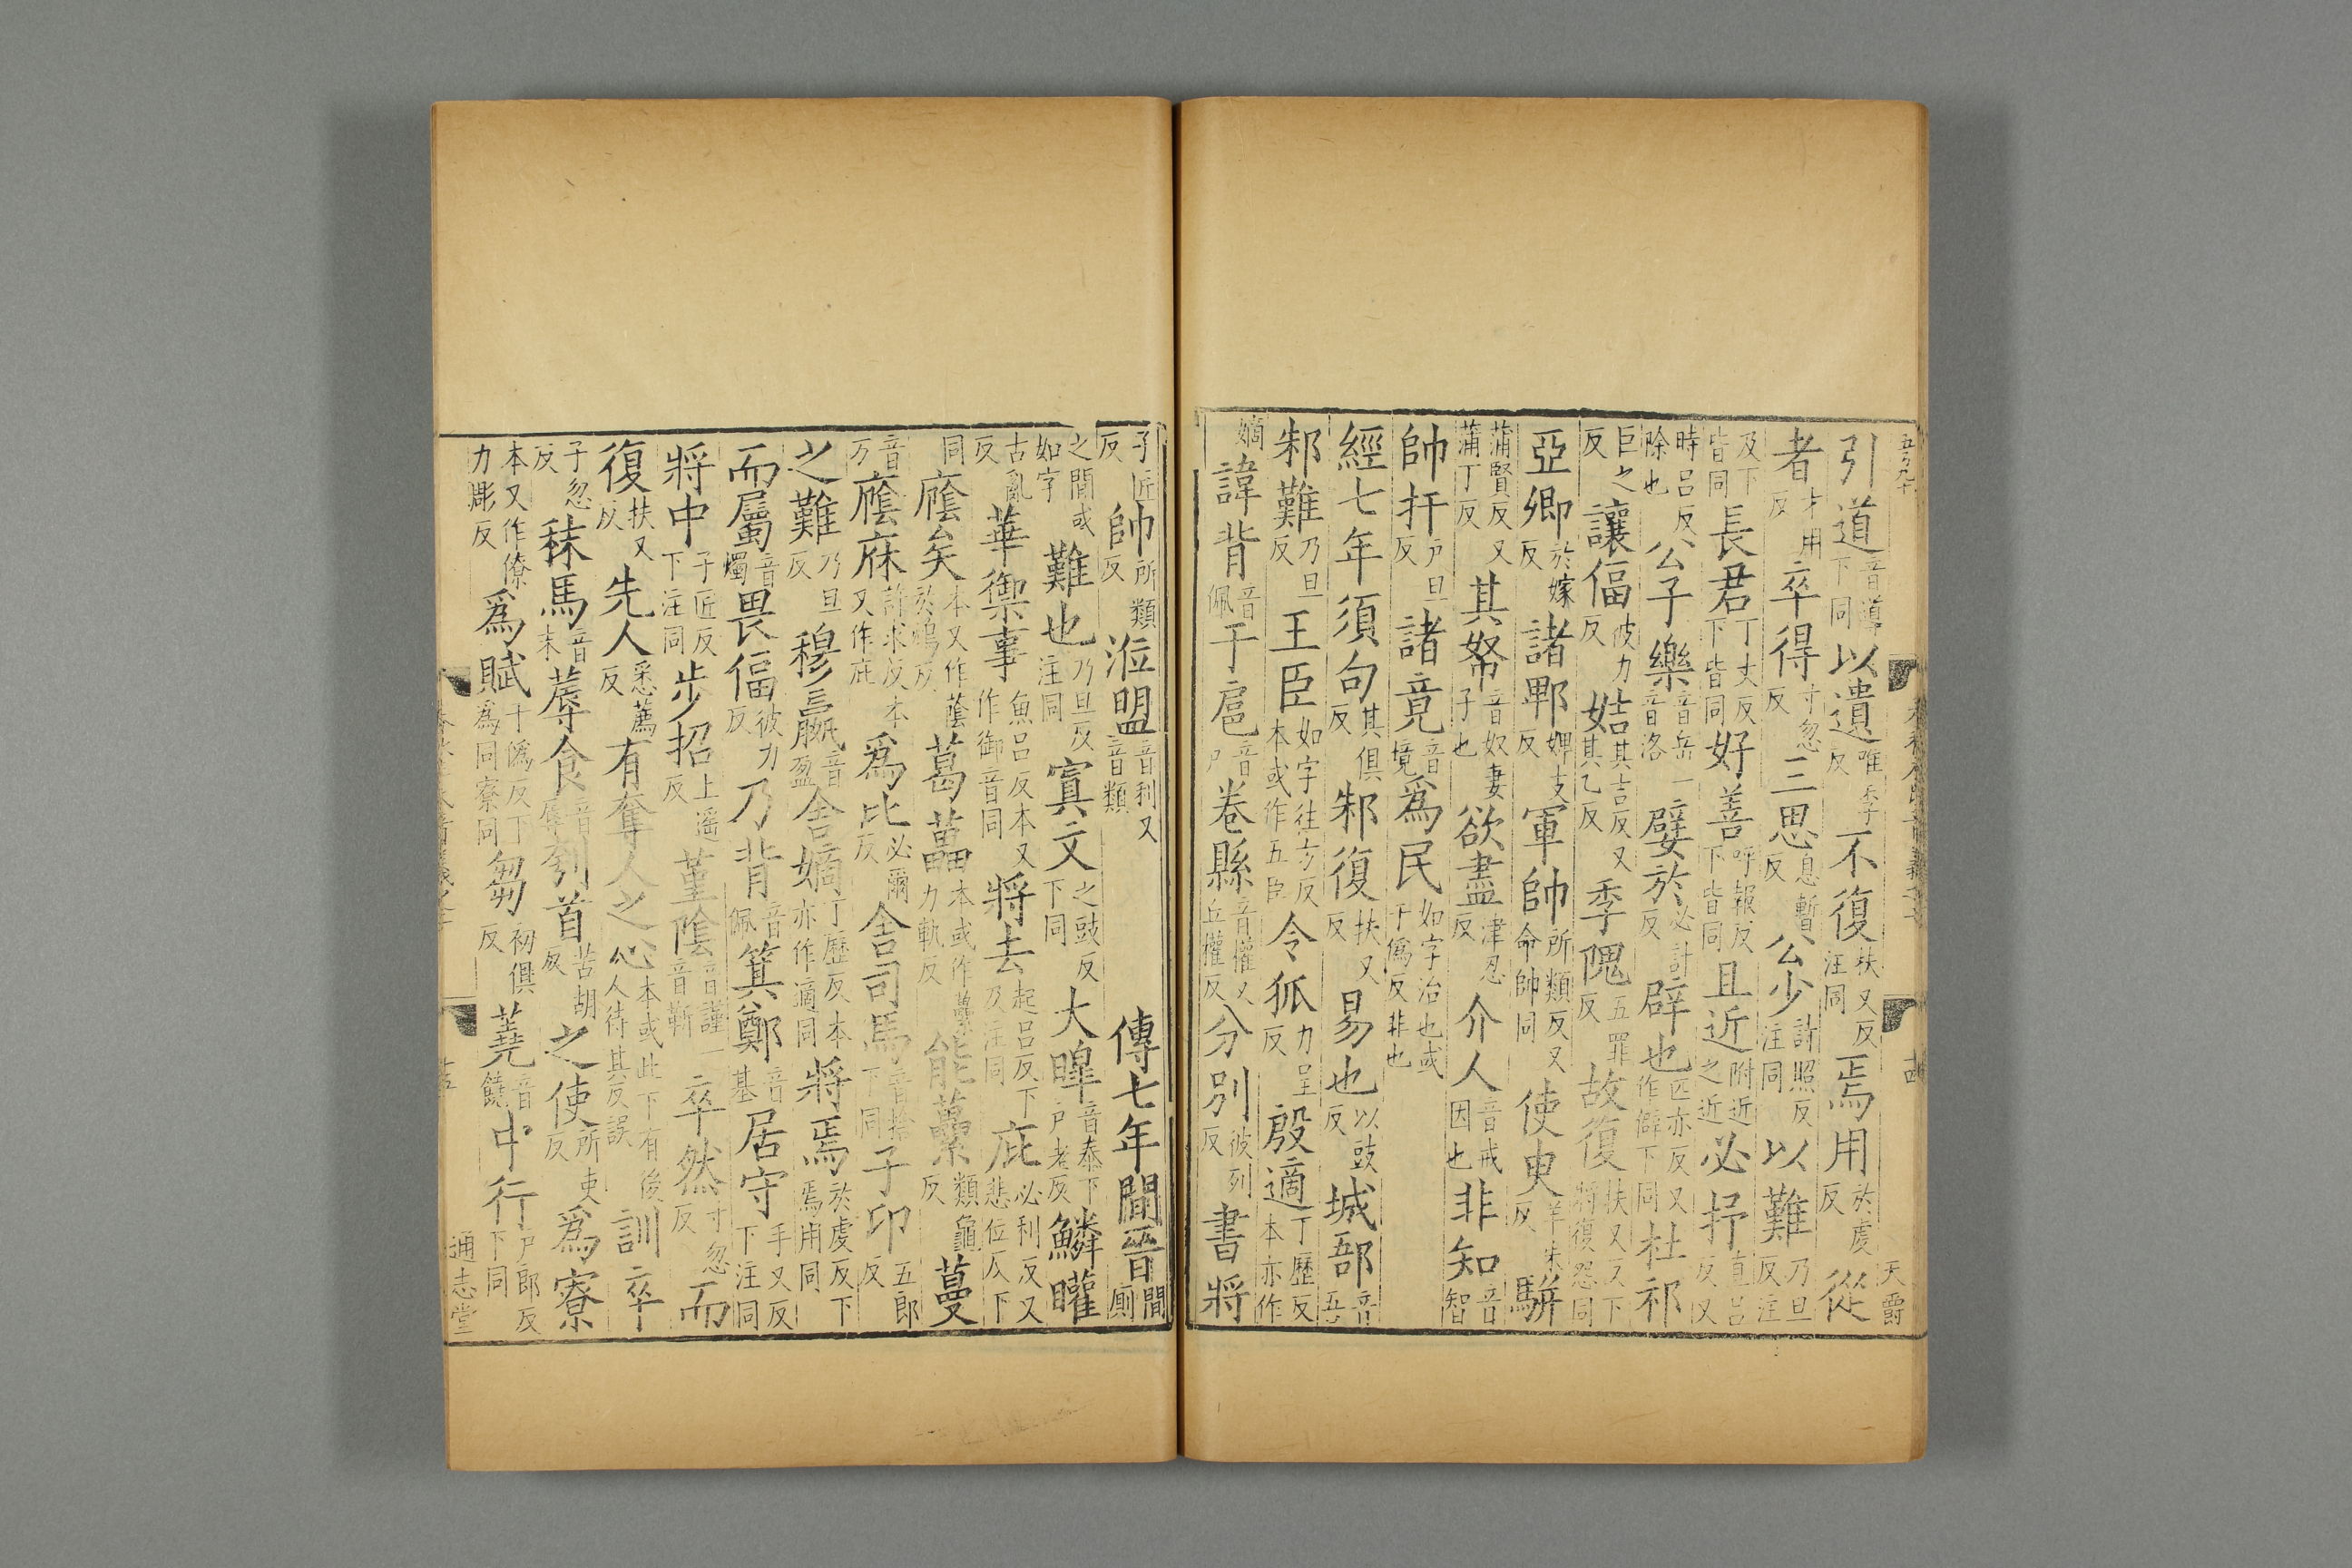 引道音導下同以遺唯季反不復扶又反注同焉用於虔反從
者才用反卒得寸忽反三思息暫反公少詩照反注同以難乃旦反注
及下皆同長君丁丈反下皆同好善呼報反下皆同且近附近之近必抒直呂反又
時呂反除也公子樂音岳一音洛嬖於必計反辟也匹亦反又作僻下同杜祁
巨之反讓偪彼力反姞其吉反又其乙反季隗五罪反故復扶又反下將復怨同
亞卿於嫁反諸郫婢支反軍帥所類反又命帥同使臾羊朱反駢
蒲賢反又蒲丁反其帑音奴妻子也欲盡津忍反介人音戒因也非知音智
帥扞戶旦反諸竟音境為民如字治也或于偽反非也
經七年須句其俱反邾復扶又反易也以豉反城郚音吾
邾難乃旦反王臣如字往方反本或作五臣令狐力呈反殷適丁歷反本亦作
嫡諱背音佩于扈音戶卷縣音權又丘權反分別彼列反書將
子匠反帥所類反涖盟音利又音類傳七年間晉間廁
之間或如字難也乃旦反注同寘文之豉反下同大皥音泰下戶老反鱗矔
古亂反華禦事魚呂反本又作御音同將去起呂反下及注同庇必利反又悲位反下
同廕矣本又作蔭於鴆反葛藟本或作虆力軌反能虆類龜反蔓
音万廕庥許求反本又作庇為比必爾反舍司馬音捨下同子卬五郎反
之難乃旦反穆嬴音盈舍嫡丁歷反本亦作適同將焉於虔反下焉用同
而屬音燭畏偪彼力反乃背音佩箕鄭音基居守手又反下注同
將中子匠反下注同步招上遙反菫陰音謹一音靳卒然寸忽反而
復扶又反先人悉薦反有奪人之心本或此下有後人待其反誤訓卒
子忽反秣馬音末蓐食音辱刳首苦胡反之使所吏反為寮
本又作僚力彫反為賦于偽反下為同寮同芻初俱反蕘音饒中行戶郎反下同
通志堂